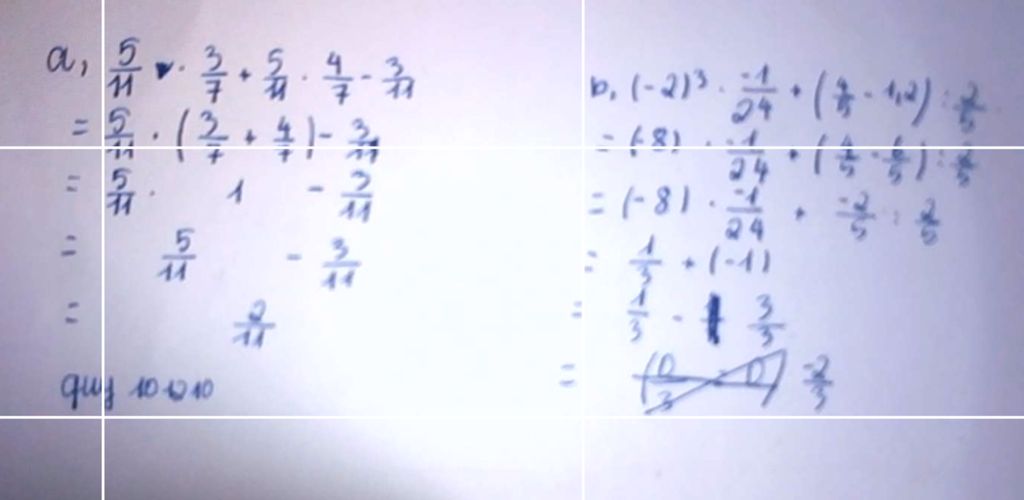 a, 5/11 · 3/7 + 5/11 · 4/7 - 3/11
= 5/11 · (3/7 + 4/7) - 3/11
= 5/11 · 1 - 3/11
= 5/11 - 3/11
= 2/11
b, (-2)³ · -1/24 + (4/5 - 1,2) : 2/5
= (-8) · -1/24 + (4/5 - 6/5) : 2/5
= (-8) · -1/24 + -2/5 : 2/5
= 1/3 + (-1)
= 1/3 - 3/3
= -2/3